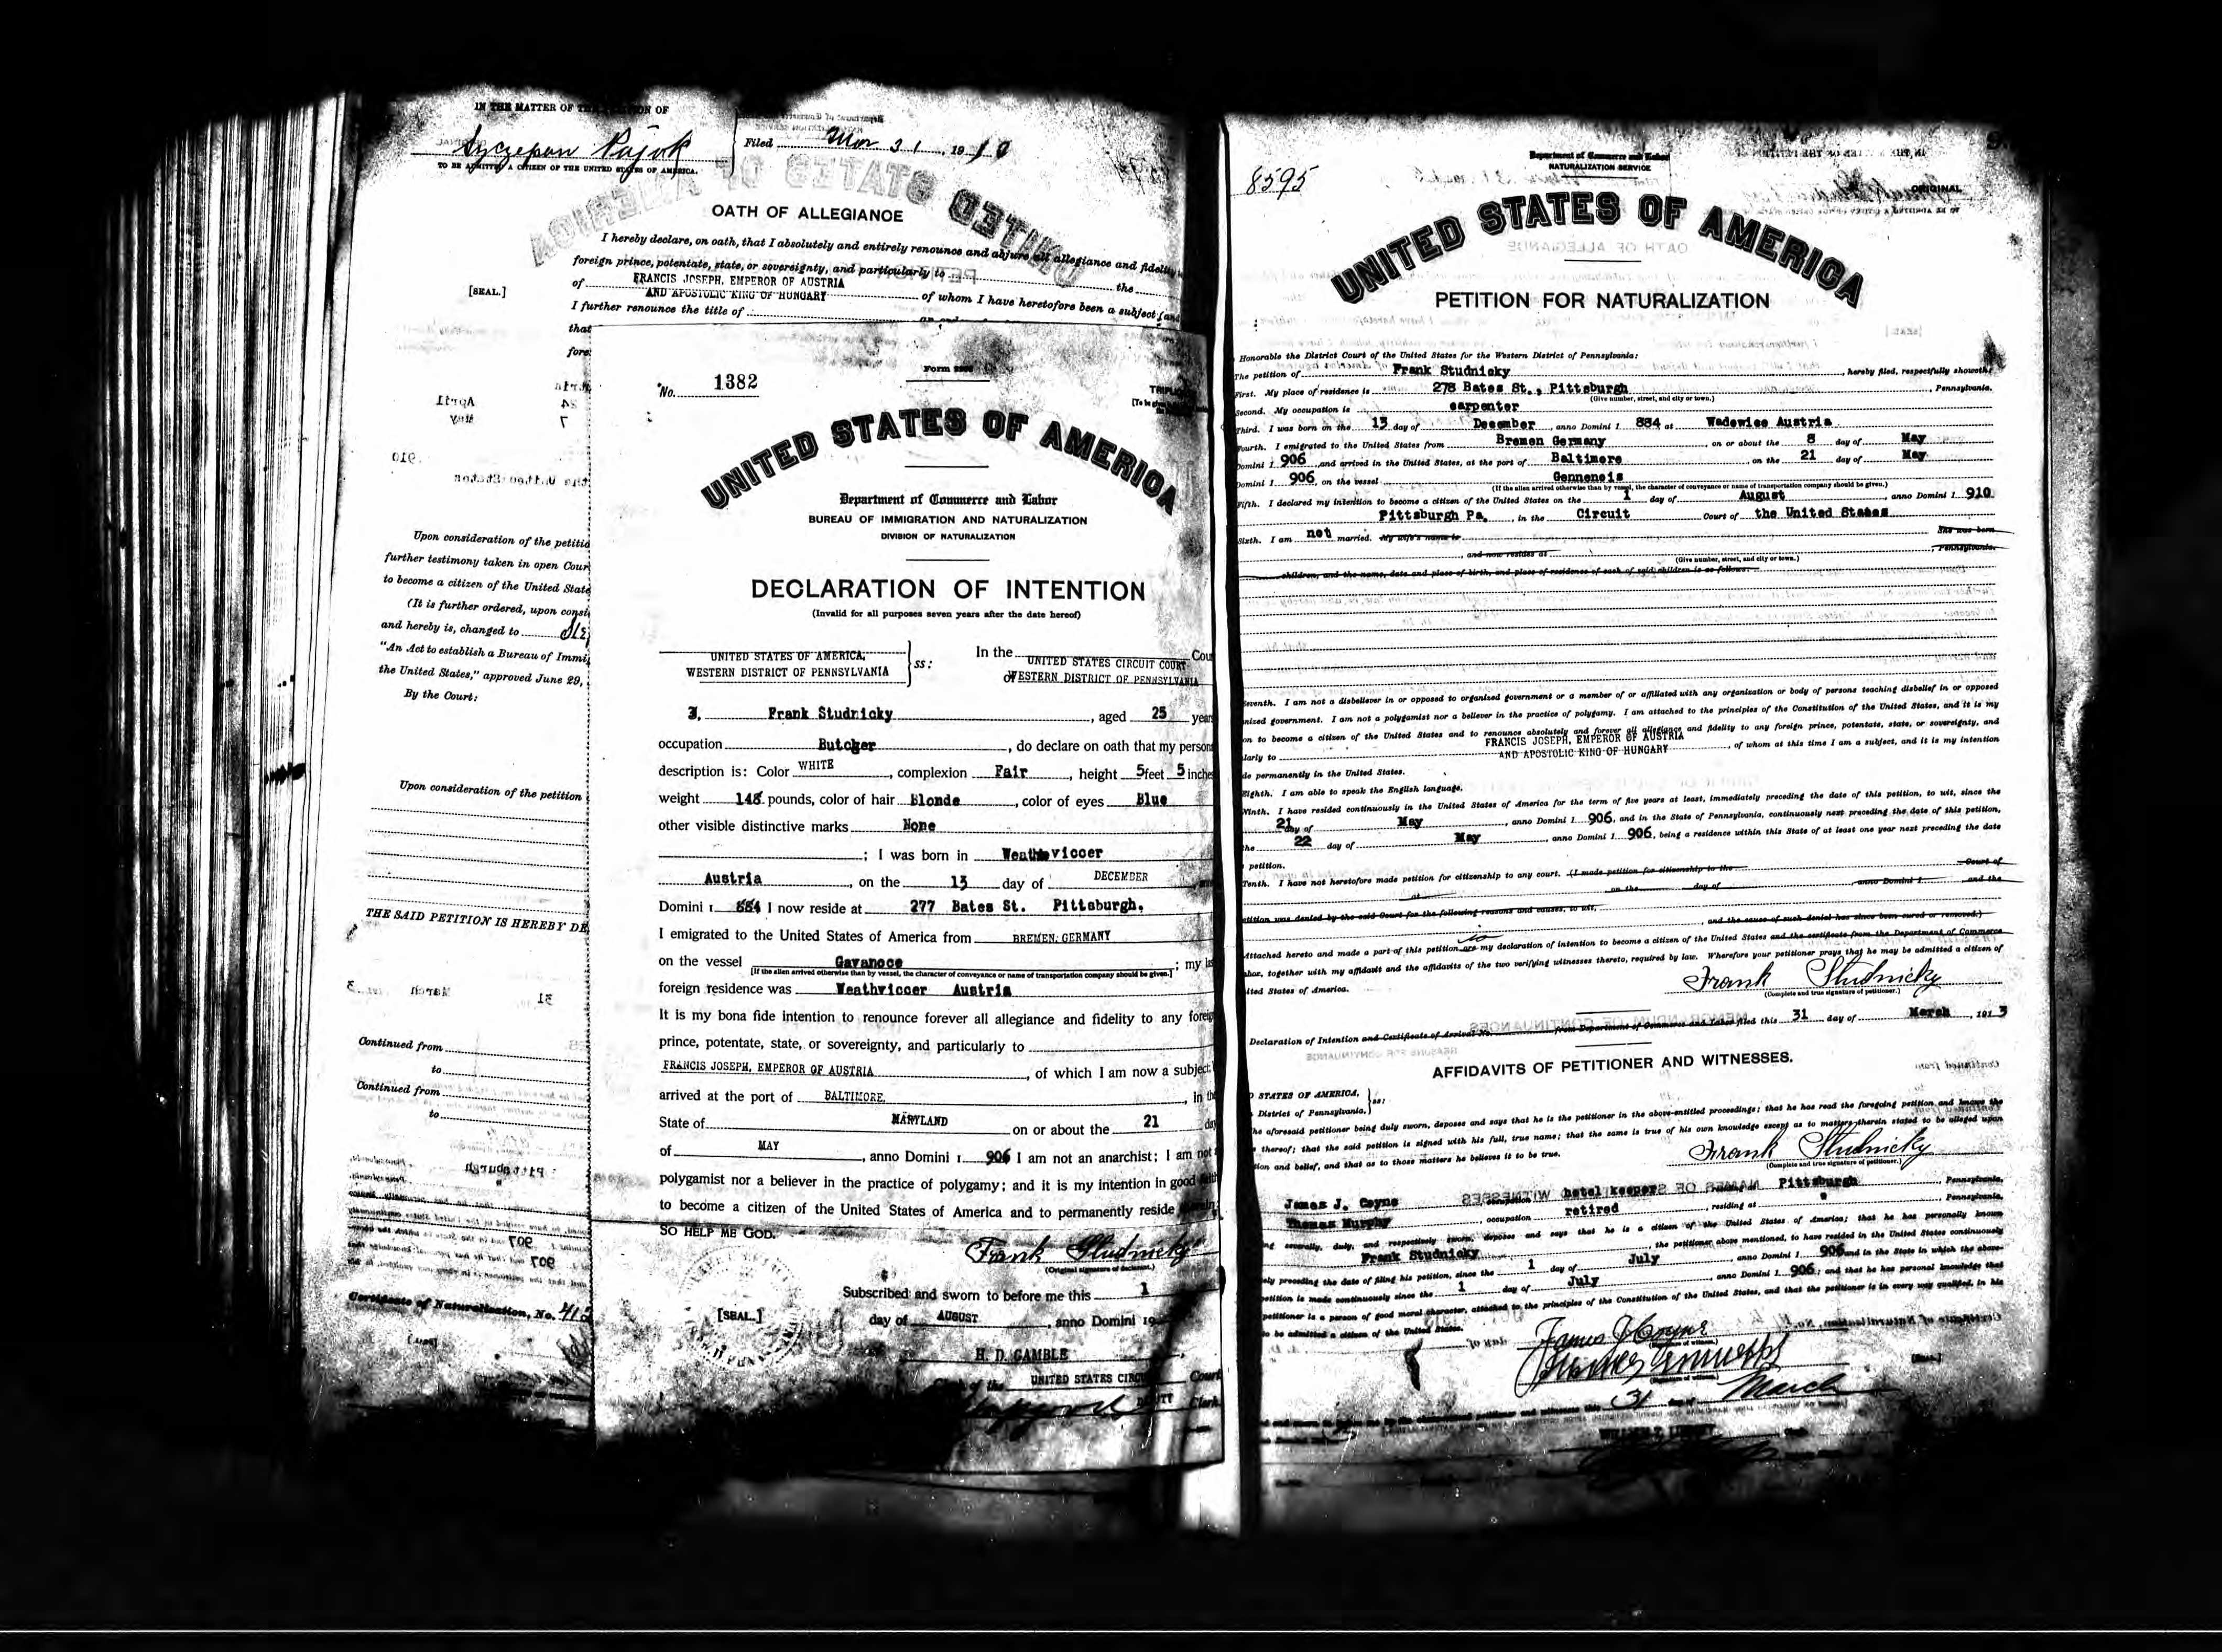 IN THE MATTER OF THE PETITION OF
Szczepan Pajok
TO BE ADMITTED A CITIZEN OF THE UNITED STATES OF AMERICA.
Filed Mar 31, 19
OATH OF ALLEGIANCE
I hereby declare, on oath, that I absolutely and entirely renounce and abjure all allegiance and fidelity
foreign prince, potentate, state, or sovereignty, and particularly to
of FRANCIS JOSEPH, EMPEROR OF AUSTRIA the
AND APOSTOLIC KING OF HUNGARY of whom I have heretofore been a subject (and
[SEAL.]
I further renounce the title of
that
fore
Upon consideration of the petitio
further testimony taken in open Cour
to become a citizen of the United State
(It is further ordered, upon consi
and hereby is, changed to
"An Act to establish a Bureau of Immi
the United States," approved June 29,
By the Court:
Upon consideration of the petition
THE SAID PETITION IS HEREBY DE
Continued from
to
Continued from
to
Certificate of Naturalization, No. 412
Form
No. 1382
TRIPL
UNITED STATES OF AMERICA
Department of Commerce and Labor
BUREAU OF IMMIGRATION AND NATURALIZATION
DIVISION OF NATURALIZATION
DECLARATION OF INTENTION
(Invalid for all purposes seven years after the date hereof)
UNITED STATES OF AMERICA,
WESTERN DISTRICT OF PENNSYLVANIA
ss:
In the UNITED STATES CIRCUIT COURT Cou
OF WESTERN DISTRICT OF PENNSYLVANIA
I, Frank Studnicky, aged 25 years
occupation Butcher, do declare on oath that my person
description is: Color WHITE, complexion Fair, height 5 feet 5 inches
weight 148 pounds, color of hair Blonde, color of eyes Blue
other visible distinctive marks None
; I was born in Weathvicoer
Austria, on the 13 day of DECEMBER
Domini 1 884 I now reside at 277 Bates St. Pittsburgh.
I emigrated to the United States of America from BREMEN, GERMANY
on the vessel Gavanoce; my las
[If the alien arrived otherwise than by vessel, the character of conveyance or name of transportation company should be given.]
foreign residence was Weathvicoer Austria
It is my bona fide intention to renounce forever all allegiance and fidelity to any foreig
prince, potentate, state, or sovereignty, and particularly to
FRANCIS JOSEPH, EMPEROR OF AUSTRIA, of which I am now a subject
arrived at the port of BALTIMORE, in the
State of MARYLAND on or about the 21 da
of MAY, anno Domini 1 906 I am not an anarchist; I am not
polygamist nor a believer in the practice of polygamy; and it is my intention in good faith
to become a citizen of the United States of America and to permanently reside therein.
SO HELP ME GOD.
Frank Studnicky
(Original signature of declarant.)
Subscribed and sworn to before me this 1
[SEAL.] day of AUGUST, anno Domini 19
H. D. GAMBLE
UNITED STATES CIRCU Court
Clerk
8595
Department of Commerce and Labor
NATURALIZATION SERVICE
ORIGINAL
UNITED STATES OF AMERICA
PETITION FOR NATURALIZATION
Honorable the District Court of the United States for the Western District of Pennsylvania:
The petition of Frank Studnicky, hereby filed, respectfully showeth:
First. My place of residence is 278 Bates St., Pittsburgh, Pennsylvania.
(Give number, street, and city or town.)
Second. My occupation is carpenter
Third. I was born on the 13 day of December, anno Domini 1 884 at Wadowice Austria
Fourth. I emigrated to the United States from Bremen Germany, on or about the 8 day of May
Domini 1 906, and arrived in the United States, at the port of Baltimore, on the 21 day of May
Domini 1 906, on the vessel Genneneis
(If the alien arrived otherwise than by vessel, the character of conveyance or name of transportation company should be given.)
Fifth. I declared my intention to become a citizen of the United States on the 1 day of August, anno Domini 1 910
Pittsburgh Pa. in the Circuit Court of the United States
Sixth. I am not married. My wife's name is She was born
, and now resides at , Pennsylvania.
(Give number, street, and city or town.)
children, and the name, date and place of birth, and place of residence of each of said children is as follows:
Seventh. I am not a disbeliever in or opposed to organized government or a member of or affiliated with any organization or body of persons teaching disbelief in or opposed
nized government. I am not a polygamist nor a believer in the practice of polygamy. I am attached to the principles of the Constitution of the United States, and it is my
on to become a citizen of the United States and to renounce absolutely and forever all allegiance and fidelity to any foreign prince, potentate, state, or sovereignty, and
FRANCIS JOSEPH, EMPEROR OF AUSTRIA
larly to AND APOSTOLIC KING OF HUNGARY, of whom at this time I am a subject, and it is my intention
de permanently in the United States.
Eighth. I am able to speak the English language.
Ninth. I have resided continuously in the United States of America for the term of five years at least, immediately preceding the date of this petition, to wit, since the
21 day of May, anno Domini 1 906, and in the State of Pennsylvania, continuously next preceding the date of this petition,
the 22 day of May, anno Domini 1 906, being a residence within this State of at least one year next preceding the date
petition.
Tenth. I have not heretofore made petition for citizenship to any court. (I made petition for citizenship to the Court of
at on the day of anno Domini 1 and the
tition was denied by the said Court for the following reasons and causes, to wit,
, and the cause of such denial has since been cured or removed.)
Attached hereto and made a part of this petition are my declaration of intention to become a citizen of the United States and the certificate from the Department of Commerce
abor, together with my affidavit and the affidavits of the two verifying witnesses thereto, required by law. Wherefore your petitioner prays that he may be admitted a citizen of
ited States of America.
Frank Studnicky
(Complete and true signature of petitioner.)
Declaration of Intention and Certificate of Arrival No. from Department of Commerce and Labor filed this 31 day of March, 191 3
AFFIDAVITS OF PETITIONER AND WITNESSES.
STATES OF AMERICA,
District of Pennsylvania,
ss:
he aforesaid petitioner being duly sworn, deposes and says that he is the petitioner in the above-entitled proceedings; that he has read the foregoing petition and knows the
thereof; that the said petition is signed with his full, true name; that the same is true of his own knowledge except as to matters therein stated to be alleged upon
tion and belief, and that as to those matters he believes it to be true.
Frank Studnicky
(Complete and true signature of petitioner.)
James J. Coyne, occupation hotel keeper Pittsburgh, Pennsylvania,
Thomas Murphy, occupation retired, residing at " , Pennsylvania,
ing severally, duly, and respectively sworn, deposes and says that he is a citizen of the United States of America; that he has personally known
Frank Studnicky, the petitioner above mentioned, to have resided in the United States continuously
ely preceding the date of filing his petition, since the 1 day of July, anno Domini 1 906 and in the State in which the above-
petition is made continuously since the 1 day of July, anno Domini 1 906; and that he has personal knowledge that
petitioner is a person of good moral character, attached to the principles of the Constitution of the United States, and that the petitioner is in every way qualified, in his
to be admitted a citizen of the United States.
James J Coyne
31 March